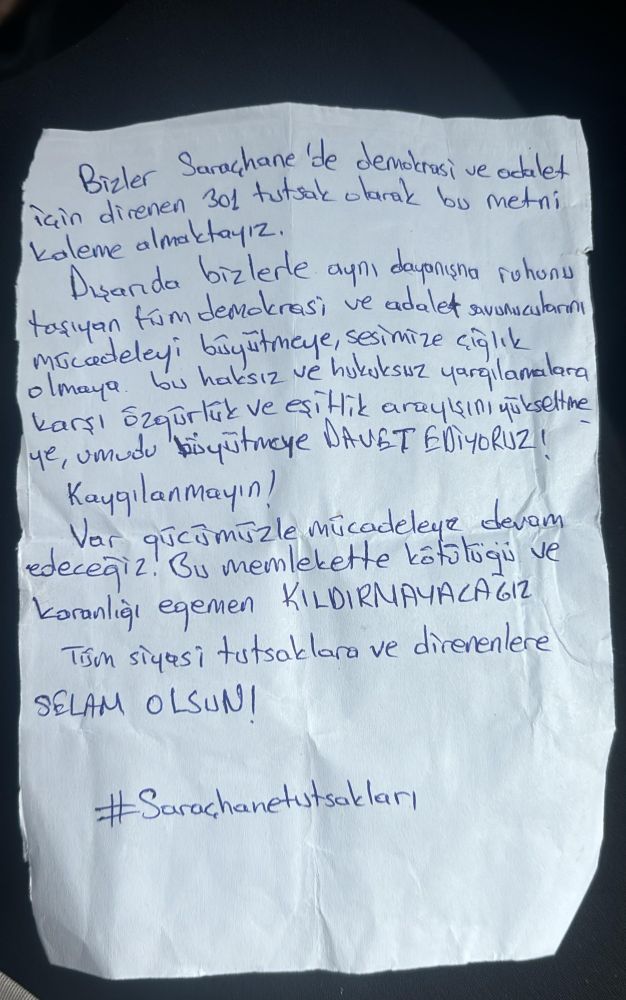 Bizler Saraçhane'de demokrasi ve adalet
için direnen 301 tutsak olarak bu metni
kaleme almaktayız.
Dışarıda bizlerle aynı dayanışma ruhunu
taşıyan tüm demokrasi ve adalet savunucularını
mücadeleyi büyütmeye, sesimize çığlık
olmaya bu haksız ve hukuksuz yargılamalara
karşı özgürlük ve eşitlik arayışını yükseltme
ye, umudu büyütmeye DAVET EDİYORUZ!
Kaygılanmayın!
Var gücümüzle mücadeleye devam
edeceğiz! Bu memlekette kötülüğü ve
karanlığı egemen KILDIRMAYACAĞIZ
Tüm siyasi tutsaklara ve direnenlere
SELAM OLSUN!
#Saraçhanetutsakları